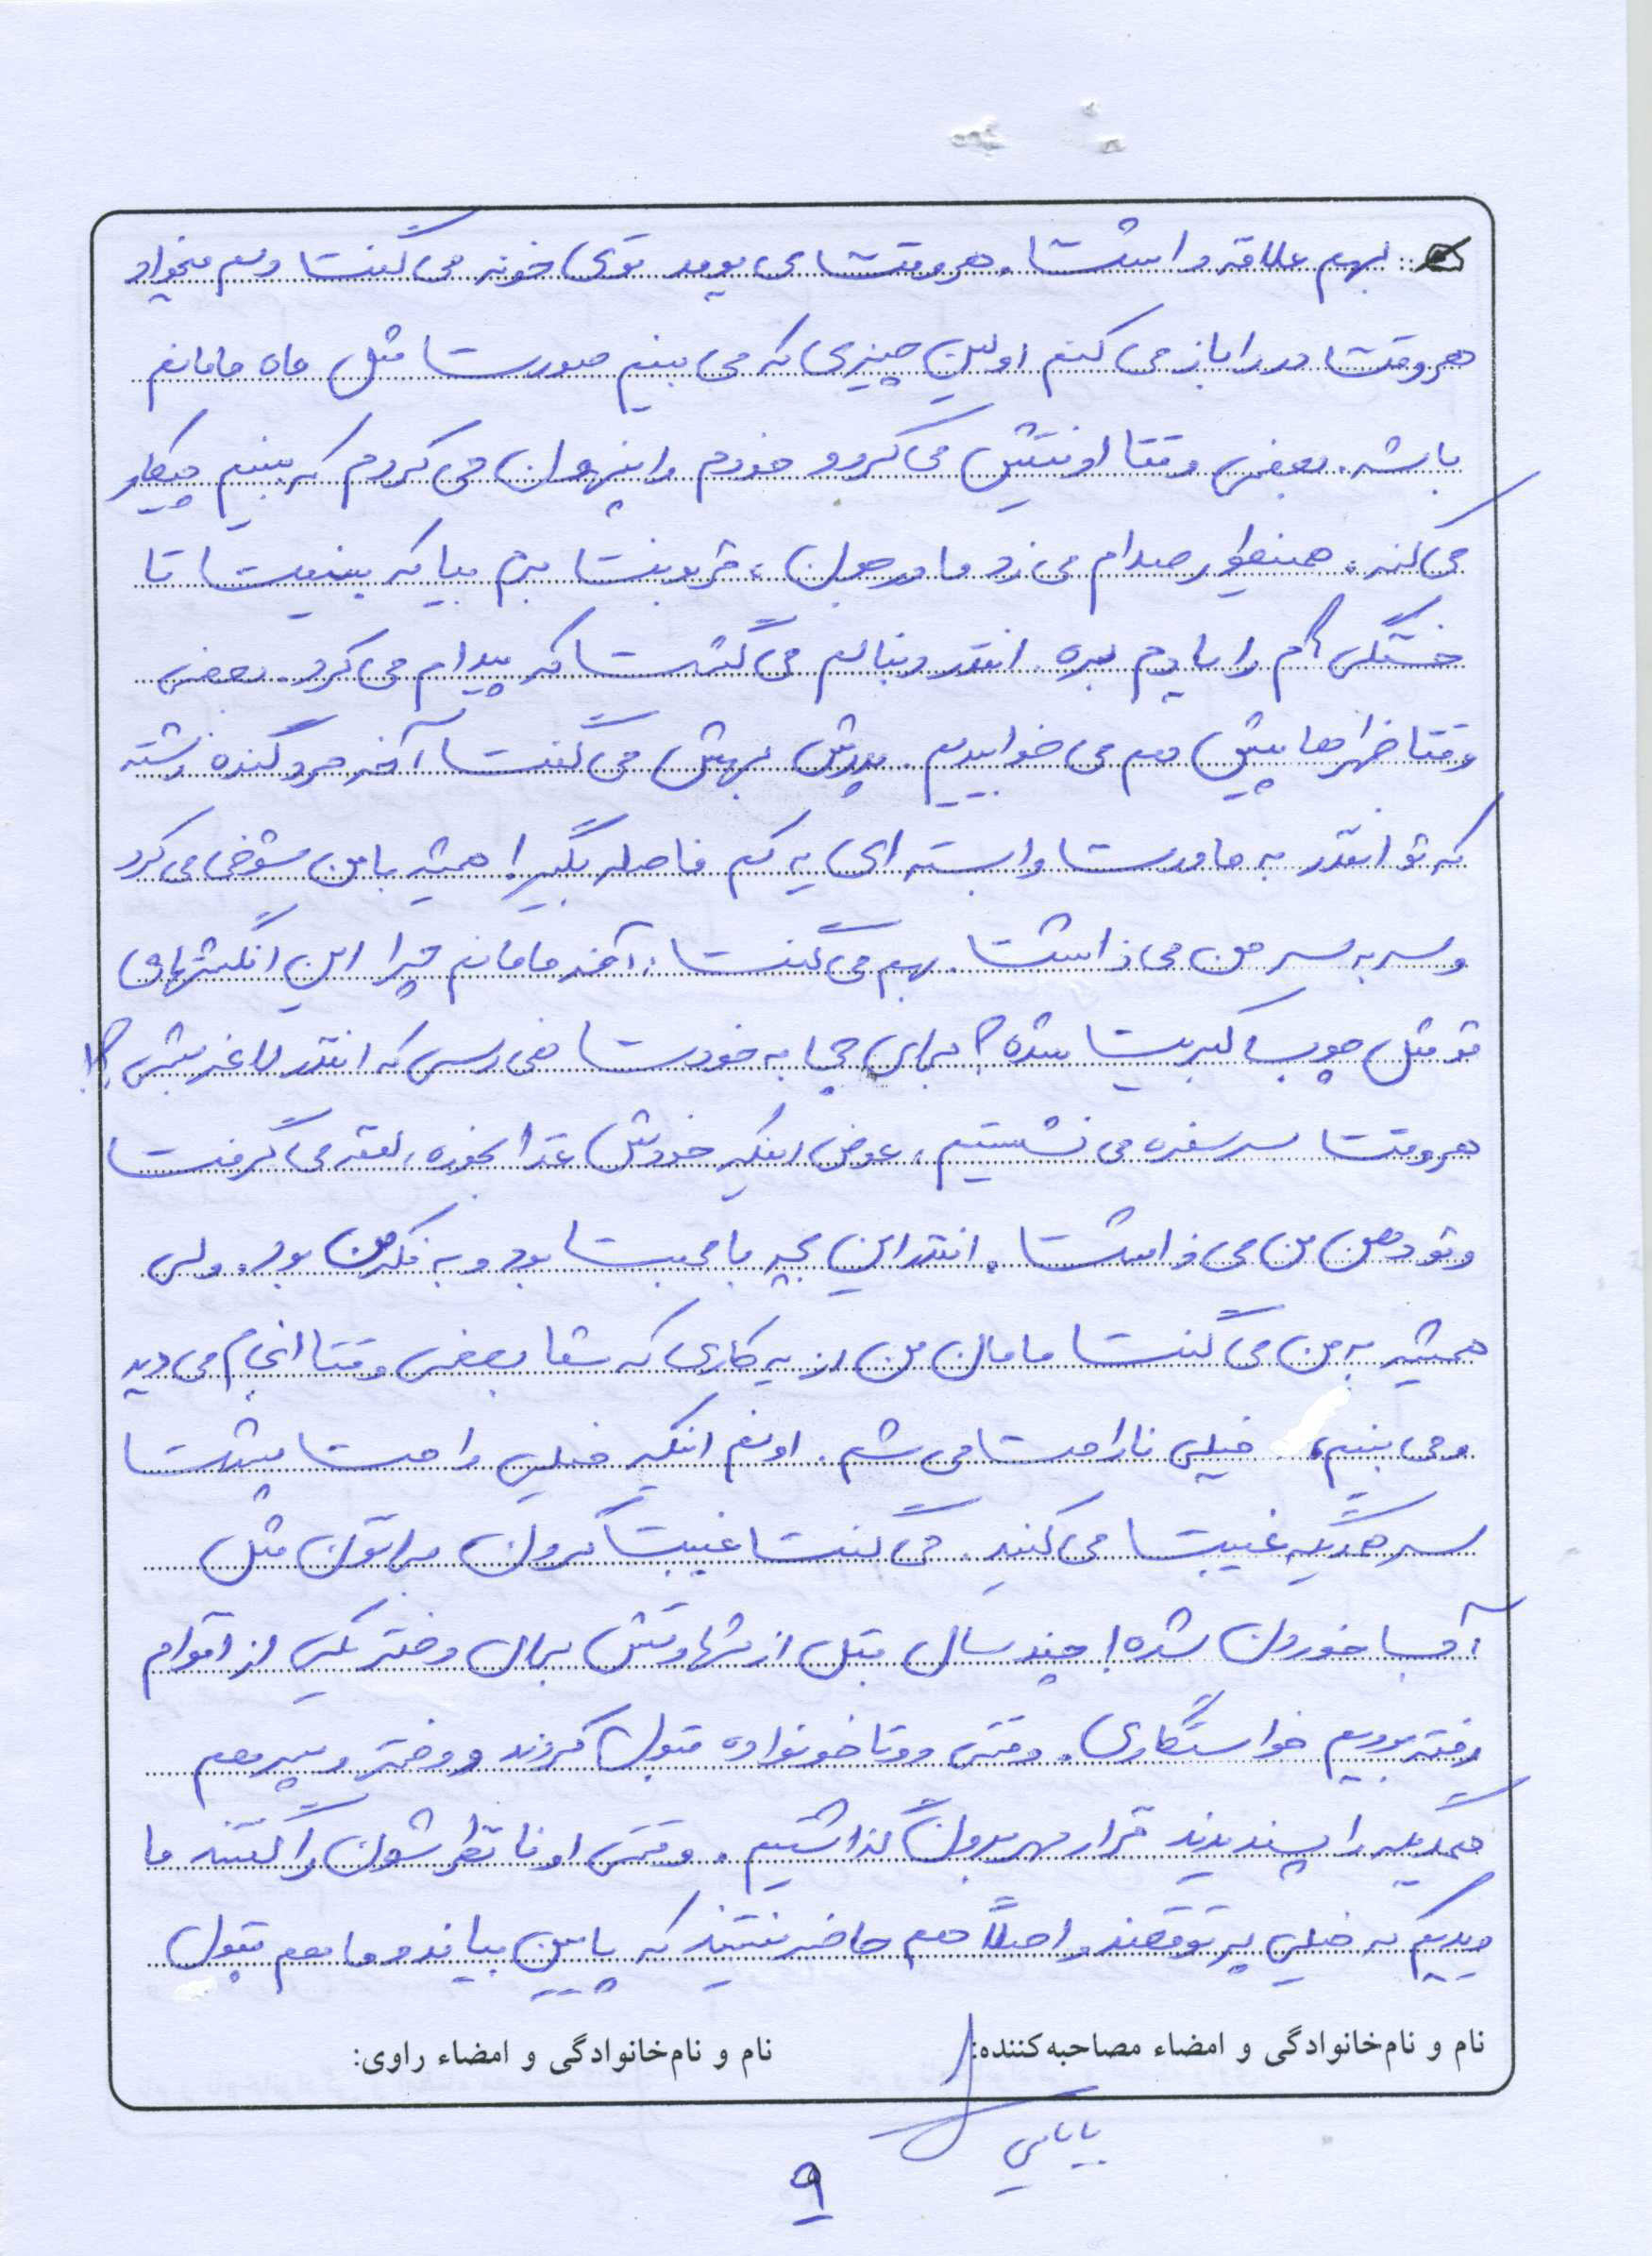 بهم علاقه داشت. هر وقت می یومد توی خونه می گفت دلم میخواد
هر وقت در را باز می کنم اولین چیزی که می بینم صورت مثل ماه مامانم
باشه. بعضی وقتا اونتیش می کرد و خودم را پنهون می کردم که ببینم چیکار
می کنه. همینطور صدام می زد مادر جون، قربونت برم بیا که ببینمت تا
خستگی ام را یادم بره. انقدر دنبالم می گشت که پیدام می کرد. بعضی
وقتا ظهرها پیش هم می خوابیدیم. پدرش بهش می گفت آخه مرد گنده زشته
که تو انقدر به مادرت وابسته ای یه کم فاصله بگیر! همیشه با من شوخی می کرد
و سر به سر من می ذاشت. بهم می گفت: آخه مامانم چرا این انگشتهای
تو مثل چوب کبریت شده؟ برای چی به خودت نمی رسی که انقدر لاغر بشی؟!
هر وقت سر سفره می نشستیم، عوض اینکه خودش غذا بخوره، لقمه می گرفت
و تو دهن من می ذاشت. انقدر این بچه با محبت بود و به فکر من بود. ولی
همیشه به من می گفت مامان من از یه کاری که شما بعضی وقتا انجام می دید
و می بینم، خیلی ناراحت می شم. اونم اینکه خیلی راحت پشت
سر همدیگه غیبت می کنید. می گفت غیبت کردن براتون مثل
آب خوردن شده! چند سال قبل از شهادتش برای دختر یکی از اقوام
رفته بودیم خواستگاری. وقتی دو تا خونواده قبول کردند و دختر و پسر هم
همدیگه را پسندیدند قرار مهر برون گذاشتیم. وقتی اونا نظرشون را گفتند ما
دیدیم که خیلی پر توقعند و اصلاً هم حاضر نیستند که پایین بیاند و ما هم قبول
نام و نام‌خانوادگی و امضاء مصاحبه‌کننده:
نام و نام‌خانوادگی و امضاء راوی:
بابائی
۹